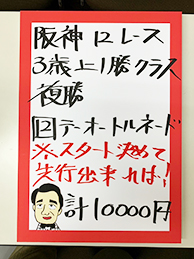 阪神12レース
3歳上1勝クラス
複勝
12テーオートルネード
※スタート決めて
先行出来れば!
計10000円